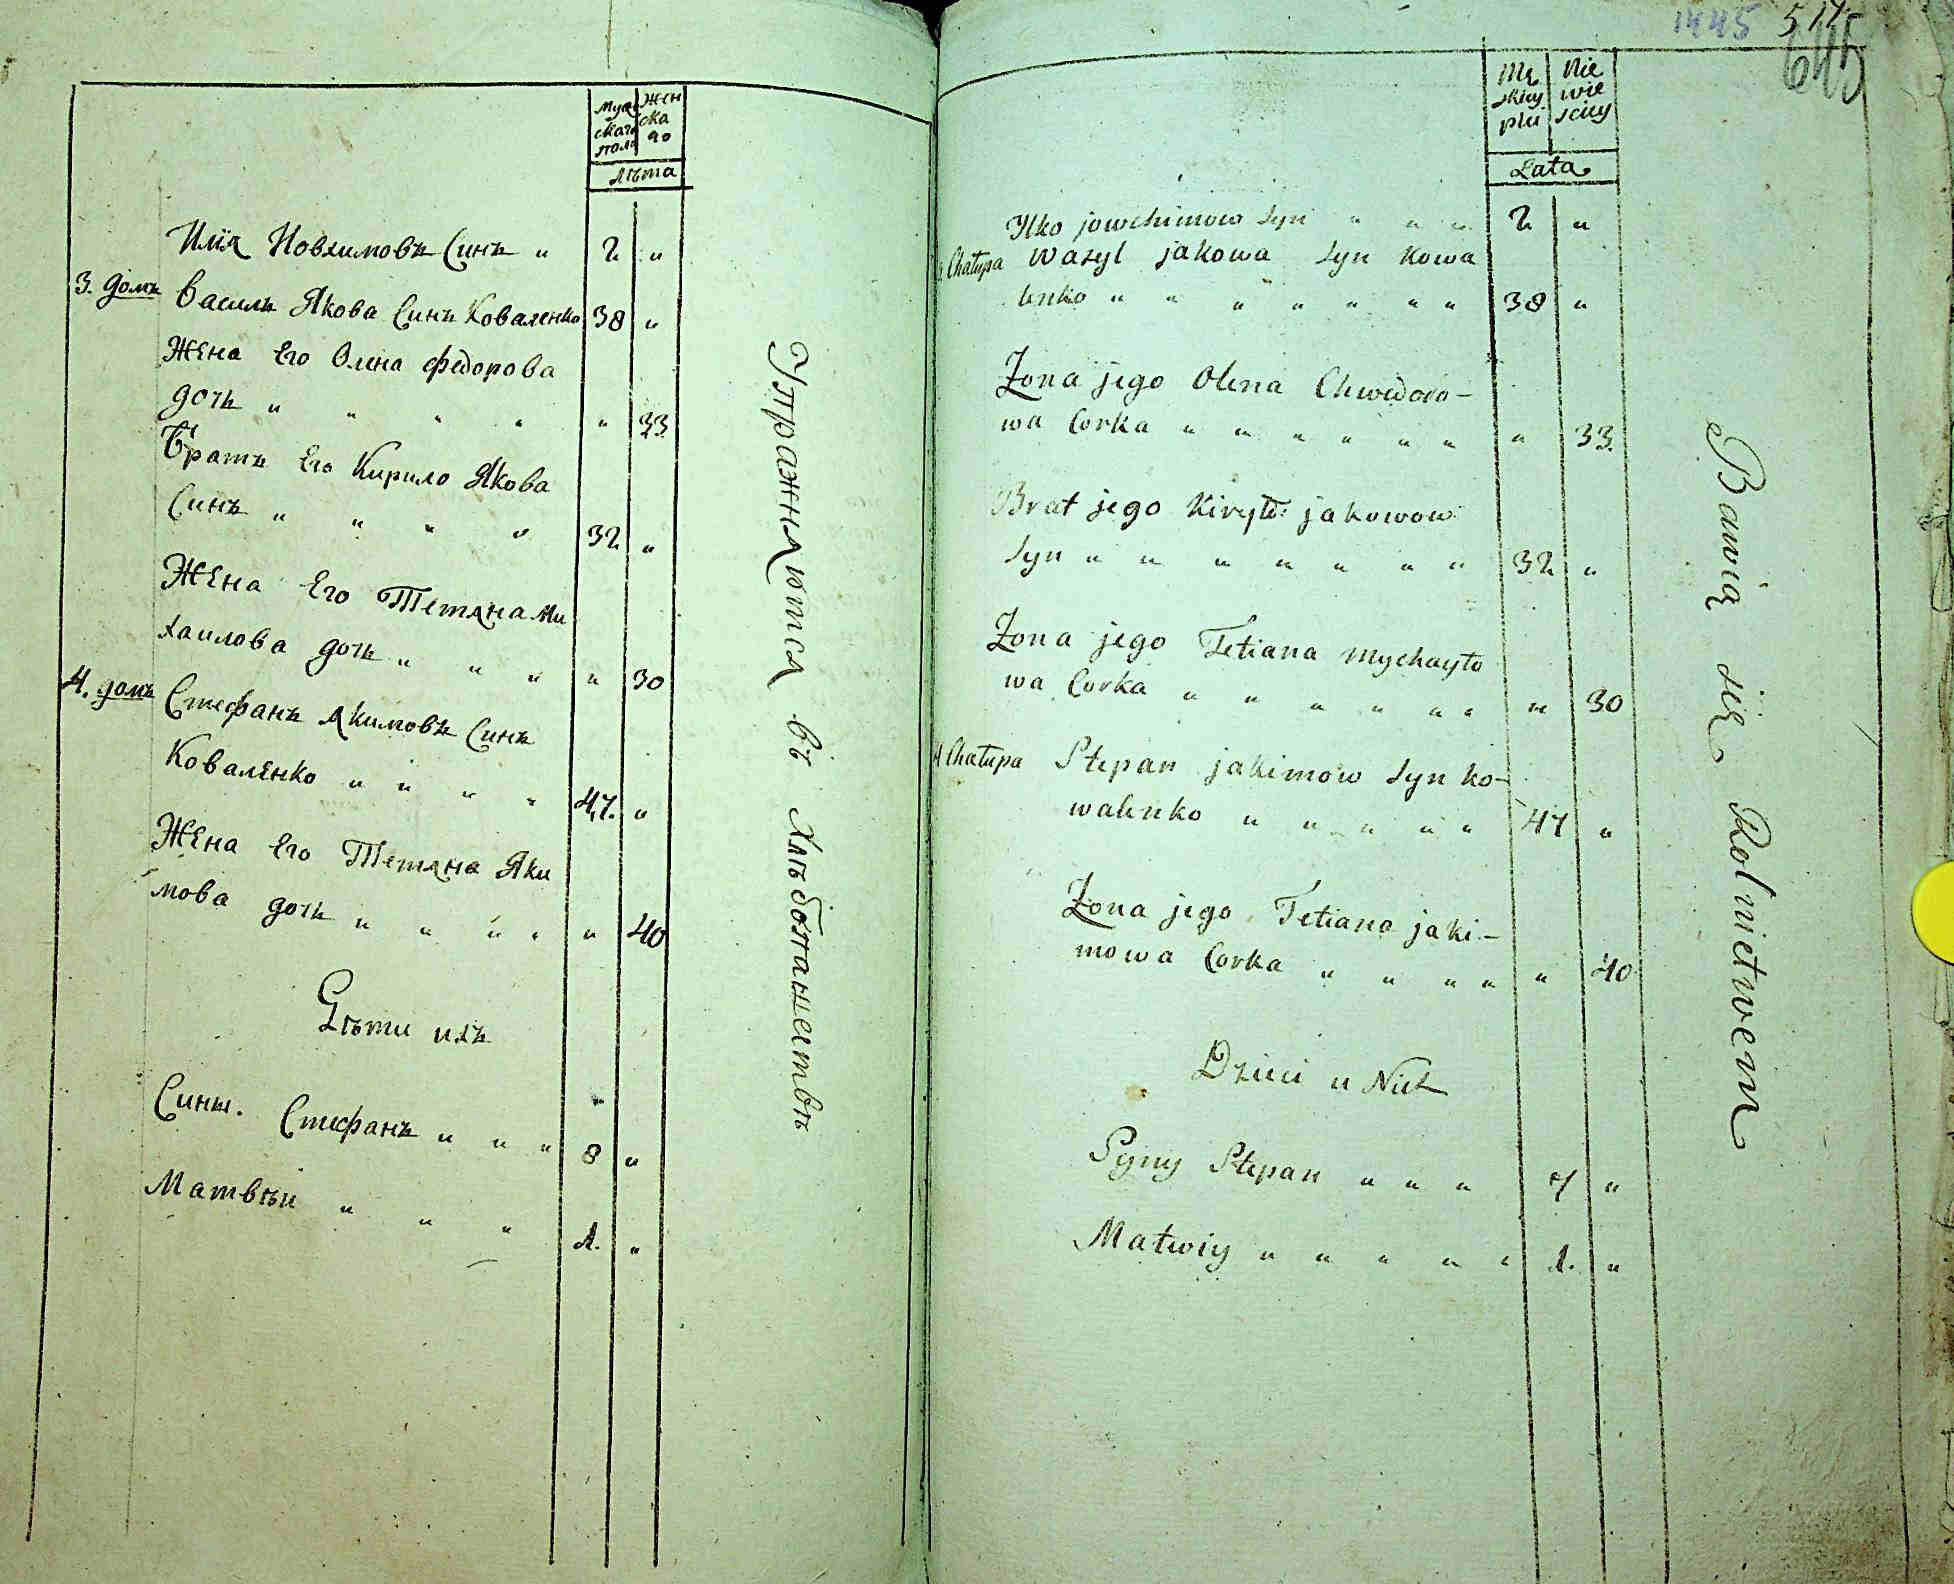 Муж
скаго
пола
Жен
ска
го
Лѣта
Илія Иовхимовъ Синъ " 2 "
3. домъ Василь Якова Синъ Коваленко 38 "
Жена Его Олена Федорова
дочь " " " " " 33
Братъ Его Кирило Якова
Синъ " " " " 32 "
Жена Его Тетяна Ми
хаилова дочь " " " " 30
4. домъ Стефанъ Акимовъ Синъ
Коваленко " " " " 47. "
Жена Его Тетяна Яки
мова дочь " " " " " 40
Дѣти ихъ
Сины. Стефанъ " " " 8 "
Матвѣи " " " 1. "
Упражняются въ Хлѣбопашествѣ
1445 514
645
Mę
skiey
płci
Nie
wie
sciey
Lata
Ilko jowchimow Syn " " " 2 "
Chałupa Wasyl jakowa Syn Kowa
lenko " " " " " " " 38 "
Zona jego Olena Chwedoro-
wa Corka " " " " " " " 33.
Brat jego Kiryło jakowow
Syn " " " " " " " 32 "
Zona jego Tetiana Mychayło
wa Corka " " " " " " " 30
4 Chałupa Stepan jakimow Syn Ko-
walenko " " " " " 47 "
Zona jego Tetiana jaki-
mowa Corka " " " " " 40
Dzieci u Nich
Syny Stepan " " " 7 "
Matwiy " " " " " 1. "
Bawią się Rolnictwem